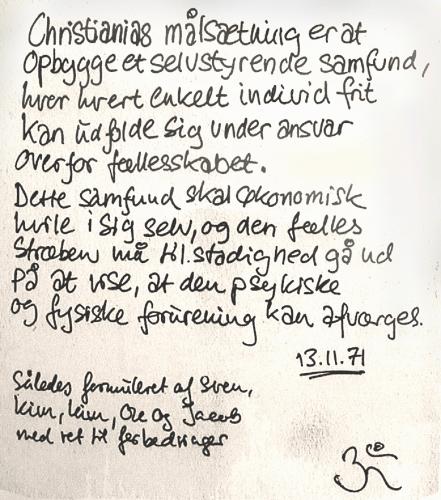 Christianias målsætning er at
Opbygge et selvstyrende samfund,
hvor hvert enkelt individ frit
kan udfolde sig under ansvar
overfor fællesskabet.
Dette samfund skal økonomisk
hvile i sig selv, og den fælles
Stræben må til stadighed gå ud
på at vise, at den psykiske
og fysiske forurening kan afværges.
13.11.71
Således formuleret af Sven,
Kim, Kim, Ole og Jacob
med ret til forbedringer
ॐ